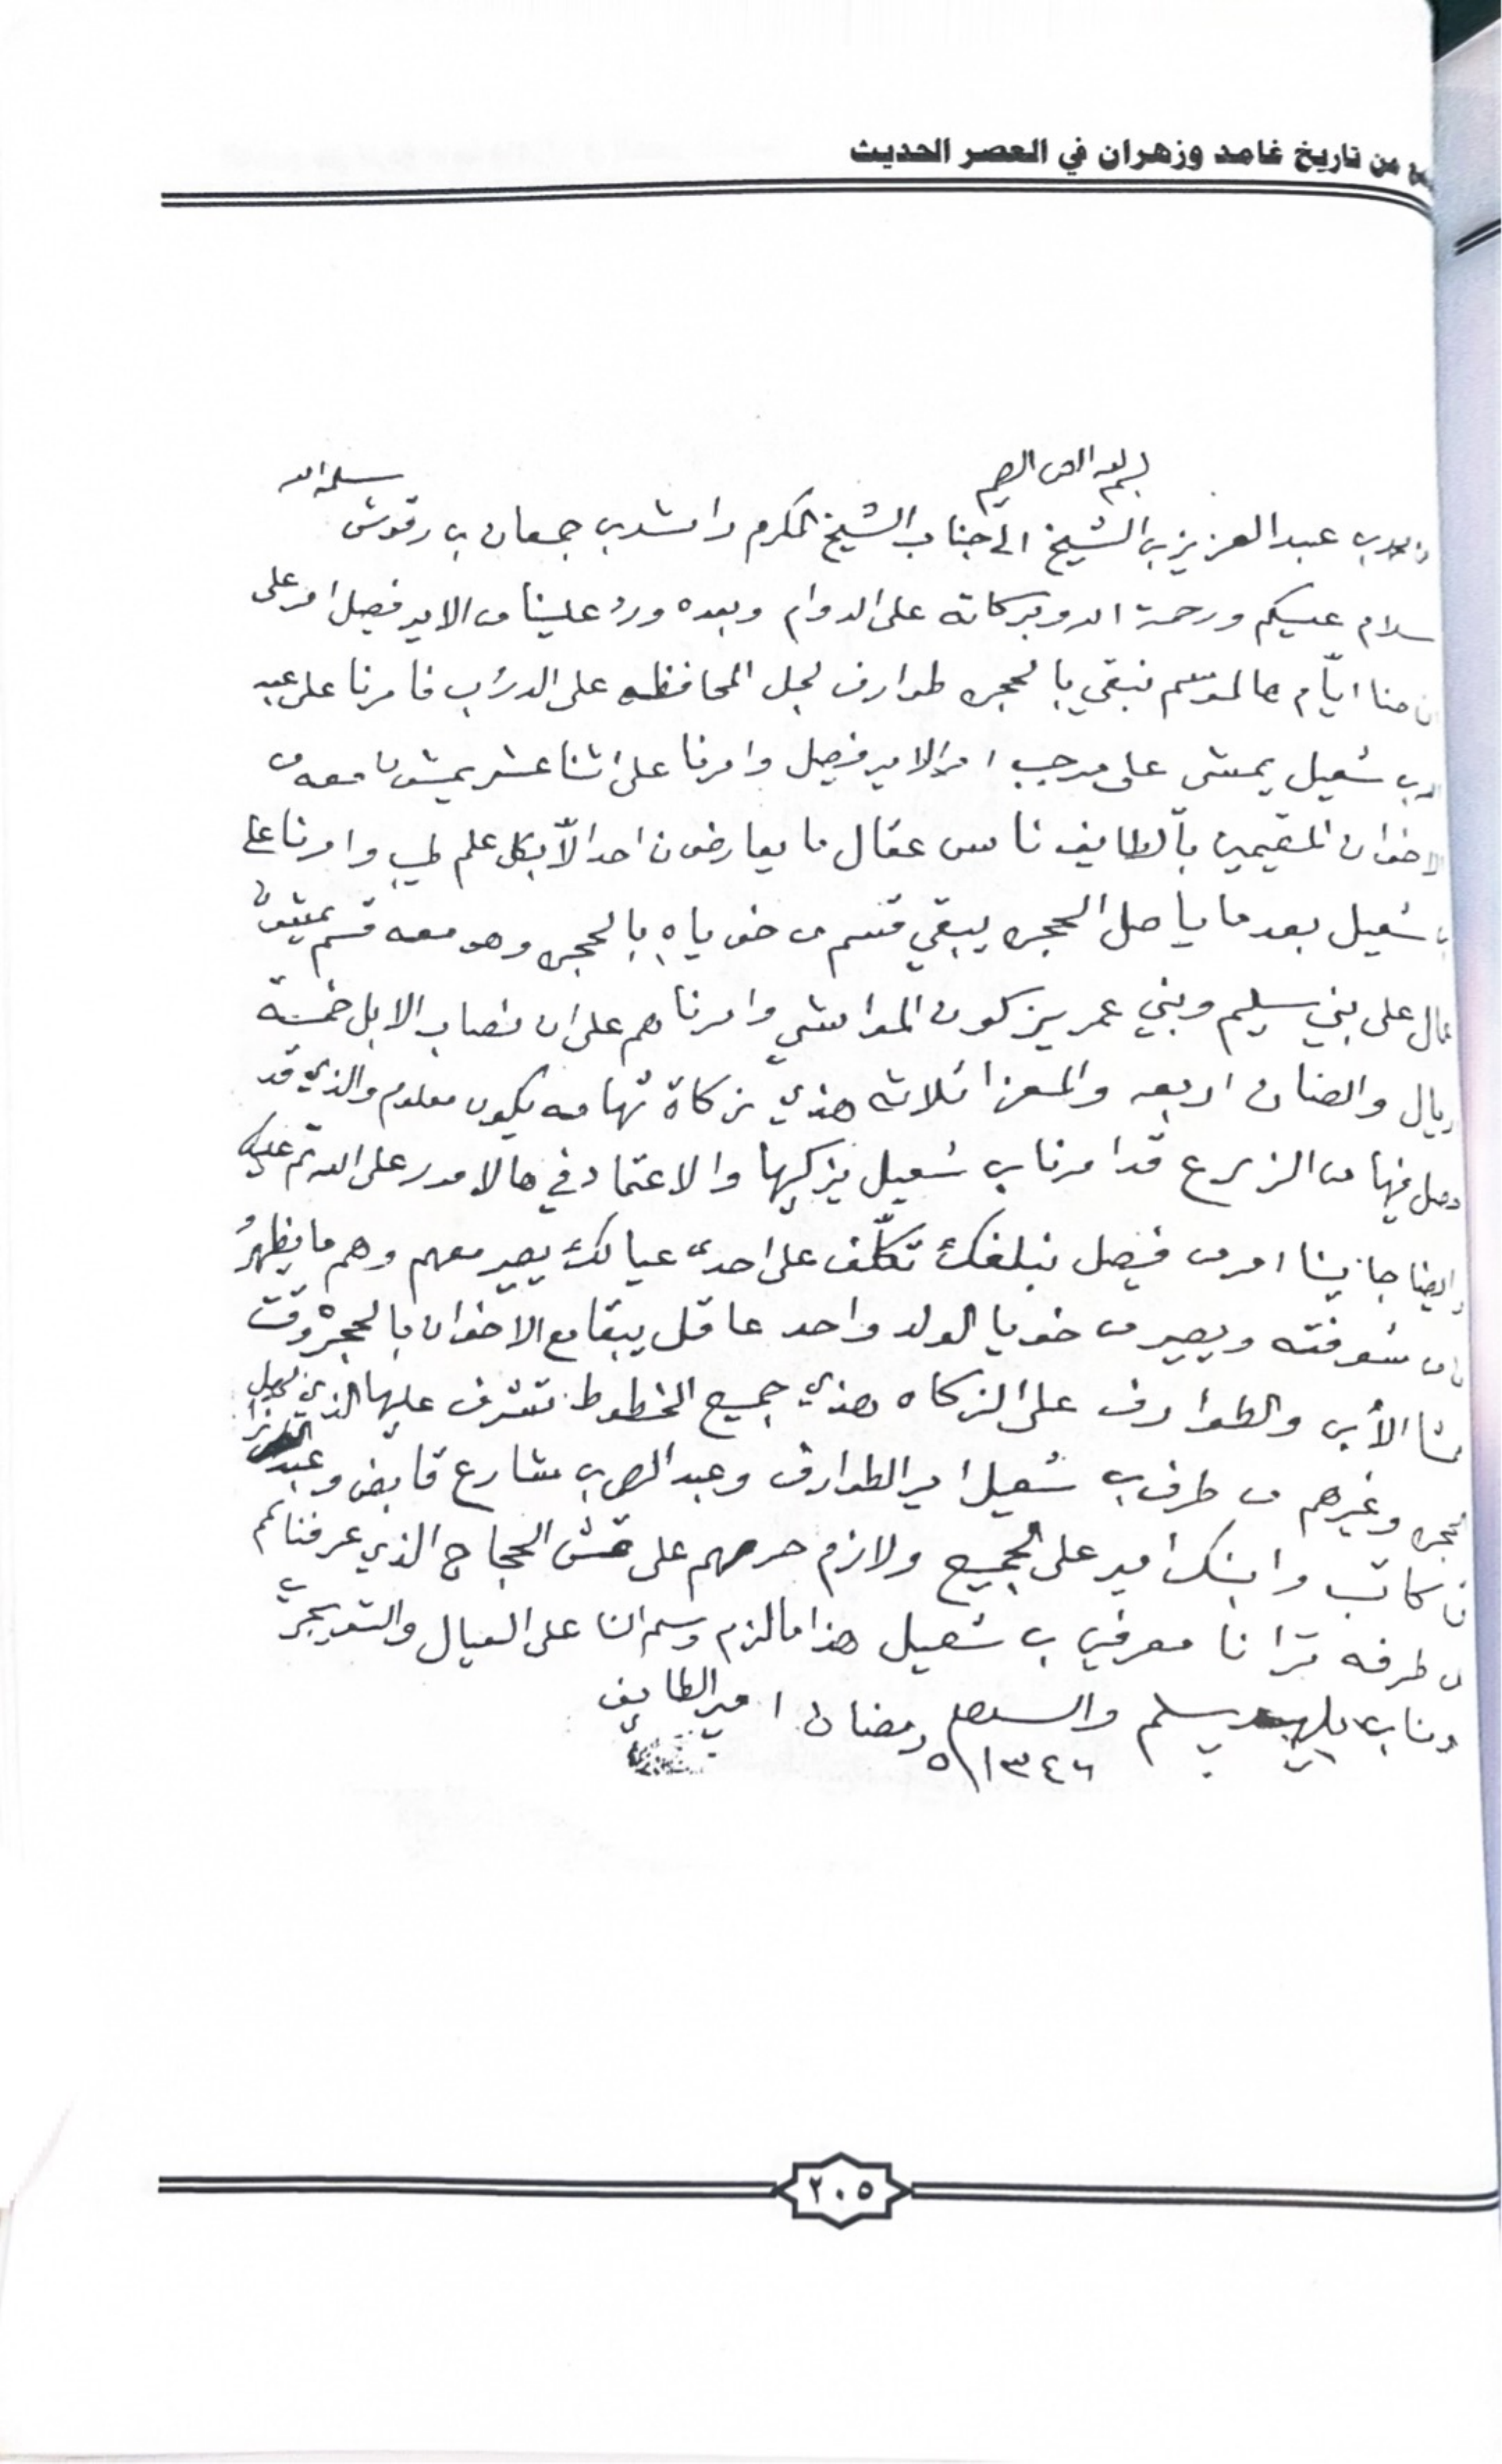 من تاريخ غامد وزهران في العصر الحديث
بسم الله الرحمن الرحيم
عبد العزيز بن الشيخ الى جناب الشيخ المكرم راشد بن جمعان بن رقوش سلمه الله
سلام عليكم ورحمة الله وبركاته على الدوام وبعده ورد علينا من الامير فيصل امر على
ان حنا ايّام هالموسم نبقي بالحجره طوارف لجل المحافظه على الدرب فامرنا على عبد
الله بن شعيل يمشي على موجب امر الامير فيصل وامرنا على اثنا عشر يمشون معه من
الاخوان المقيمين بالطايف ناس عقال ما يعارضون احد الاّ بكل علم طيب وامرنا على
بن شعيل بعد ما ياصل الحجره يبقي قسم من خوياه بالحجره وهو معه قسم يمشون
عمال على بني سليم وبني عمر يزكون المواشي وامرناهم على ان نصاب الابل خمسة
ريال والضان اربعه والمعزا ثلاثه هذي زكاة تهامه يكون معلوم والذي قد
وصل فيها من الزرع قد امرنا بن شعيل يزكيها والاعتماد في هالامور على الله ثم عليك
وايضا جانا امر من فيصل نبلغك تكلّف على احد من عيالك يصير معهم وهم ما يظهرُ
من شوفته ويصير من خويا الولد واحد عاقل يبقا مع الاخوان بالحجره وقت
والطوارف على الزكاه هذي جميع الخطوط تشرف عليها الذي لهل
الحجره وغيرهم من طرف بن شعيل امير الطوارف وعبد الرحمن بن مشارع قابض وعبد
كاتب وابنك امير على الجميع ولازم حرصهم على قش الحجاج الذي عرفناكم
من طرفه ترانا معرفين بن شعيل هذا ما لزم وسم لنا على العيال والتويجري
ومنا يسلم والسلام رمضان امير الطايف
٥/١٣٤٦
٢٠٥